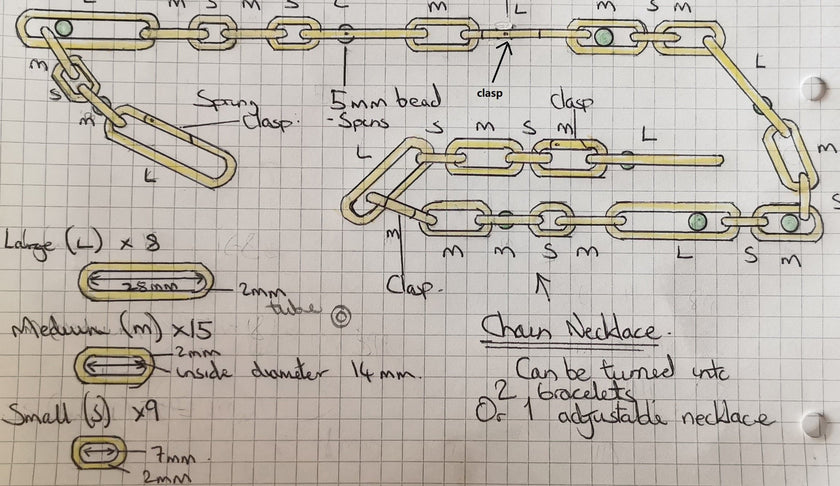 L m s m s L m L m s m
clasp
m
s
m
Spring
clasp.
L
5mm bead
- Spins
clasp
L
m
s
L
s m s m L
m
Clasp.
m m s m L s m
Large (L) x 8
28mm
2mm
tube
Medium (m) x15
2mm
inside diameter 14mm.
Small (s) x9
7mm
2mm
Chain Necklace.
Can be turned into
2 bracelets
Or 1 adjustable necklace